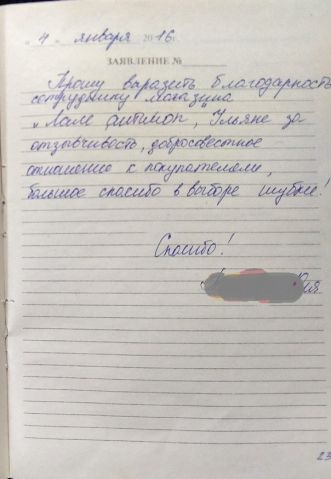 " 4 " января 2016 г.
ЗАЯВЛЕНИЕ №
Прошу выразить благодарность
сотруднику магазина
"Лале Ульяне за
отзывчивость, добросовестное
отношение к покупателям,
большое спасибо в выборе шубки!
Спасибо!
23